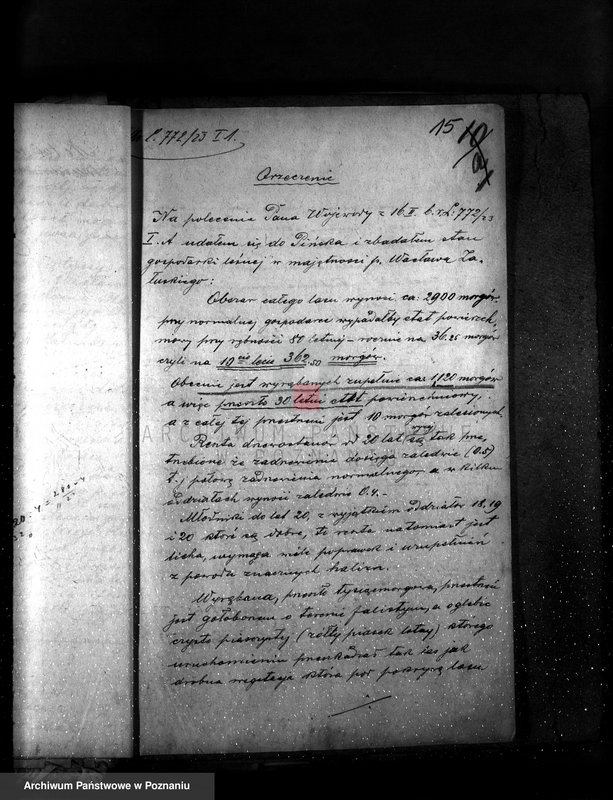 L. 772/23 I 1.
15
Orzeczenie
Na polecenie Pana Wojewody z 16 II. b.r. L: 772/23
I. A udałem się do Pińska i zbadałem stan
gospodarki leśnej w majętności p. Wacława Za-
łuskiego:
Obszar całego lasu wynosi ca: 2900 morgów
przy normalnej gospodarce wypadałby etat powierzch-
niowy przy rębności 80 letniej – rocznie na 36.25 morgów
czyli na 10 cio lecie 362,50 morgów.
Obecnie jest wyrąbanych zupełnie ca: 1,120 morgów
a więc przeszło 30 letni etat powierzchniowy,
a z całej tej przestrzeni jest 10 morgów zalesionych.
Reszta drzewostanów od 20 lat wzwyż są tak prze-
trzebione że zadrzewienie dosięga zaledwie (0.5)
t. j. połowę zadrzewienia normalnego, a w kilku
oddziałach wynosi zaledwie 0.4. –
Młodniki do lat 20, z wyjątkiem oddziałów 18, 19
i 20 które są dobre, to reszta natomiast jest
licha, wymaga wiele poprawek i uzupełnień
z powodu znacznych halizn.
Wyrąbana, przeszło tysiącmorgowa, przestrzeń
jest gołoborzem o terenie falistym, a o glebie
czysto piaszczystej (żółty piasek lotny) którego
uruchomieniu przeszkadzał tak las jak
drobna wegetacja która pod pokrywą lasu
ARCHIWUM PAŃSTWOWE
W POZNANIU
Archiwum Państwowe w Poznaniu